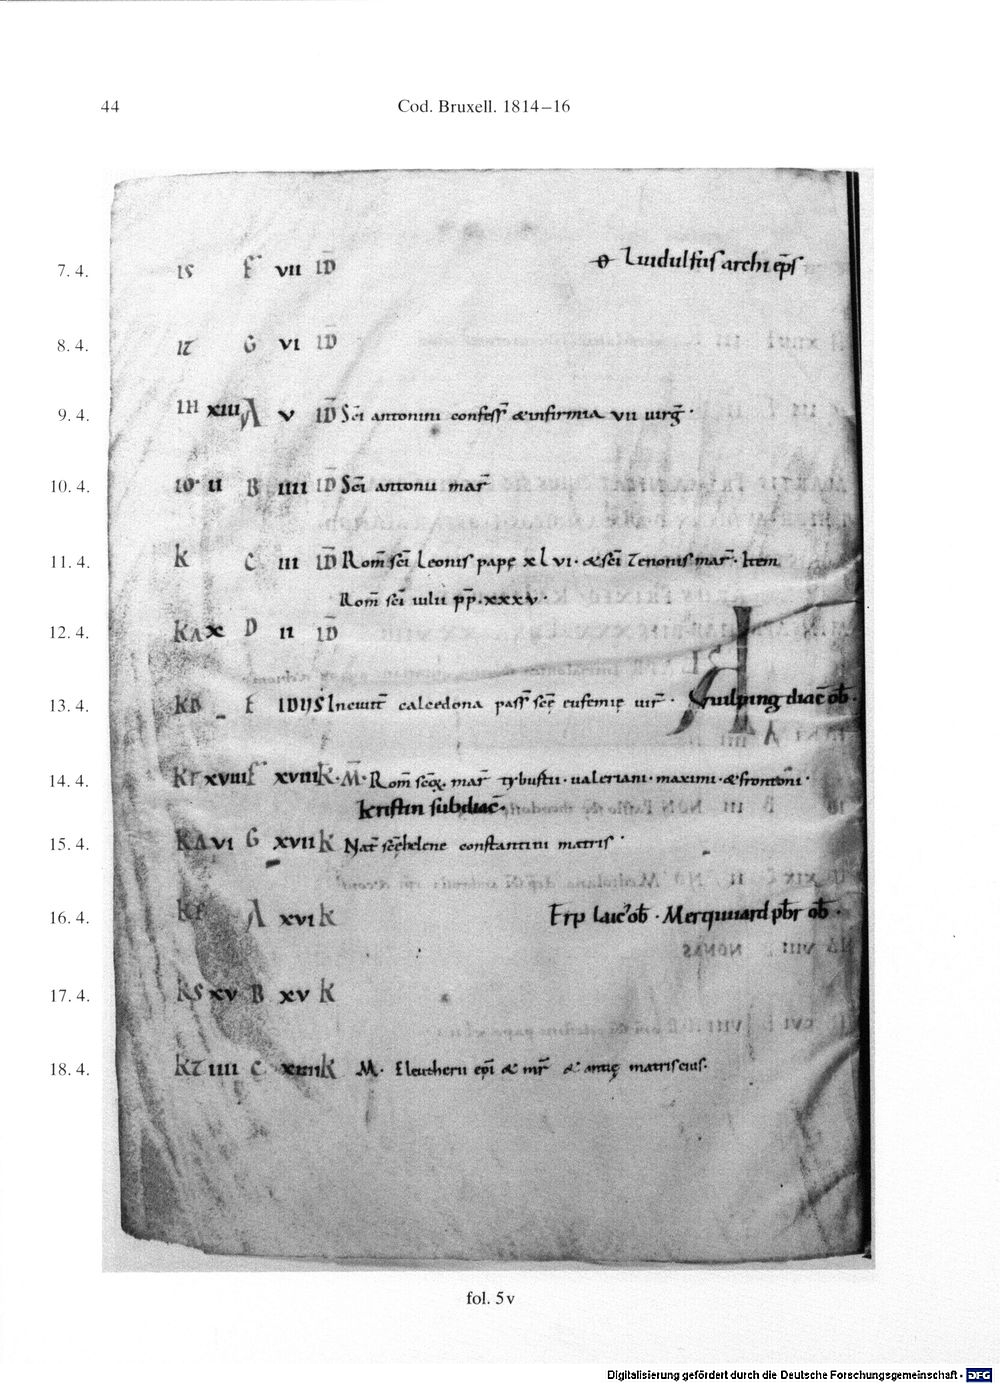 44 Cod. Bruxell. 1814–16
7. 4. IS F VII ID Θ Liudulfus archiep̄s
8. 4. IZ G VI ID
9. 4. IH XIII A V ID Sc̄i antonini confess̄ & infirmia VII uirg̅·
10. 4. IO· II B IIII ID Sc̄i antonii mar̄
11. 4. K C III ID Rom̄ sc̄i Leonis papę xLVI· & sc̄i Zenonis mar̄· Item
Rom̄ sc̄i iulii pp̄·xxxv·
12. 4. KA X D II ID
13. 4. KB E IDUS In ciuit̄ calcedona pass̄ sc̄ę eufemię uir̄· diac̄ ob̄·
14. 4. KΓ XVIII F XVIII K· M̄· Rom̄ mar̄ tybustii· ualeriani· maximi· & frontoni·
kristin subdiac̄·
15. 4. VI G XVII K Nat̄ sc̄ę helene constantini matris·
16. 4. A XVI K Erp laic' ob̄· Merquuard pb̄r ob̄·
17. 4. KS XV B XV K
18. 4. KZ IIII C XIIII K M· Eleutherii ep̄i & mr̄ & antię matris eius·
fol. 5v
Digitalisierung gefördert durch die Deutsche Forschungsgemeinschaft - DFG